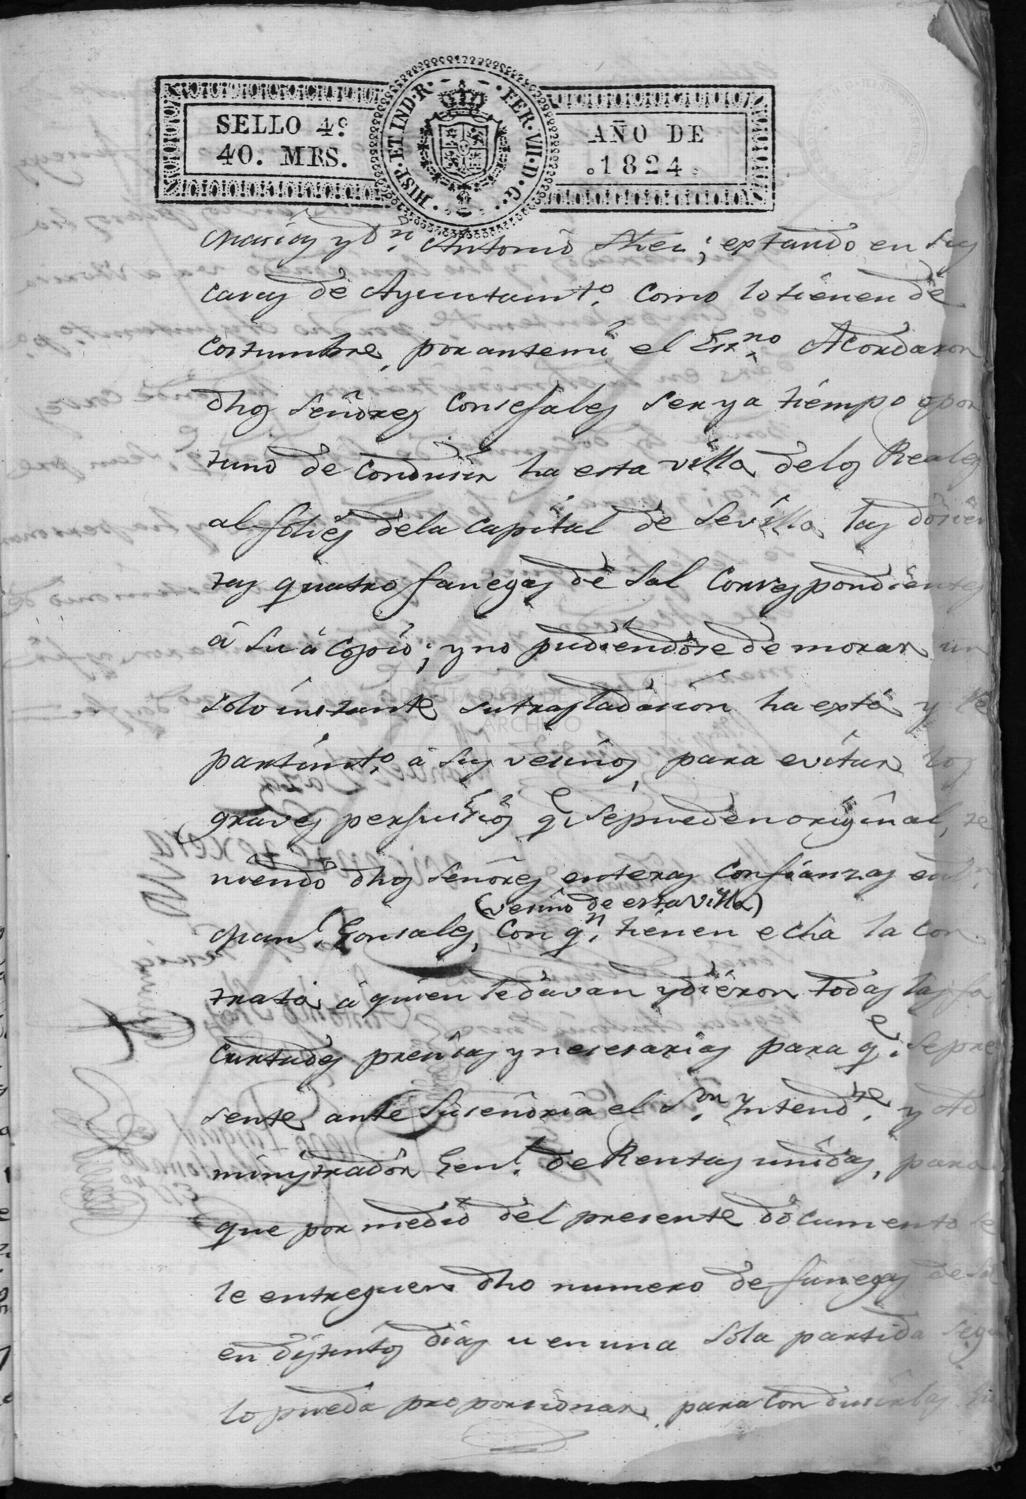 SELLO 4º
40. MRS.
HISP. ET IND. R. FER. VII. D. G.
AÑO DE
1824.
y Dn. Antonio ; estando en sus
casas de Ayuntamto. como lo tienen de
costumbre, por ante mi el Essno. Acordaron
dhos Señores Consejales ser ya tiempo opor
tuno de condusir ha esta villa de los Reales
alfolies de la capital de Sevilla las dosien
tas quatro fanegas de Sal Correspondientes
á su acopio; y no pudiendose demorar un
solo instante su trasladasion ha esta y Re
partimto. á sus vesinos, para evitar los
graves perjuisios qe. se pueden originar, te
niendo dhos Señores enteras confianzas en Dn.
(vesino de esta villa)
Manl. Gonsales, con qn. tienen echa la con
trata, á quien le davan y dieron todas las fa
curtades presisas y nesesarias para qe. se pre
sente ante su señoria el Sor. Yntendte. y Ad
ministrador Genl. de Rentas unidas, para
que por medio del presente documento se
le entreguen dho numero de fanegas de sal
en distintos dias u en una sola partida segun
lo pueda proporsionar, para condusirlas